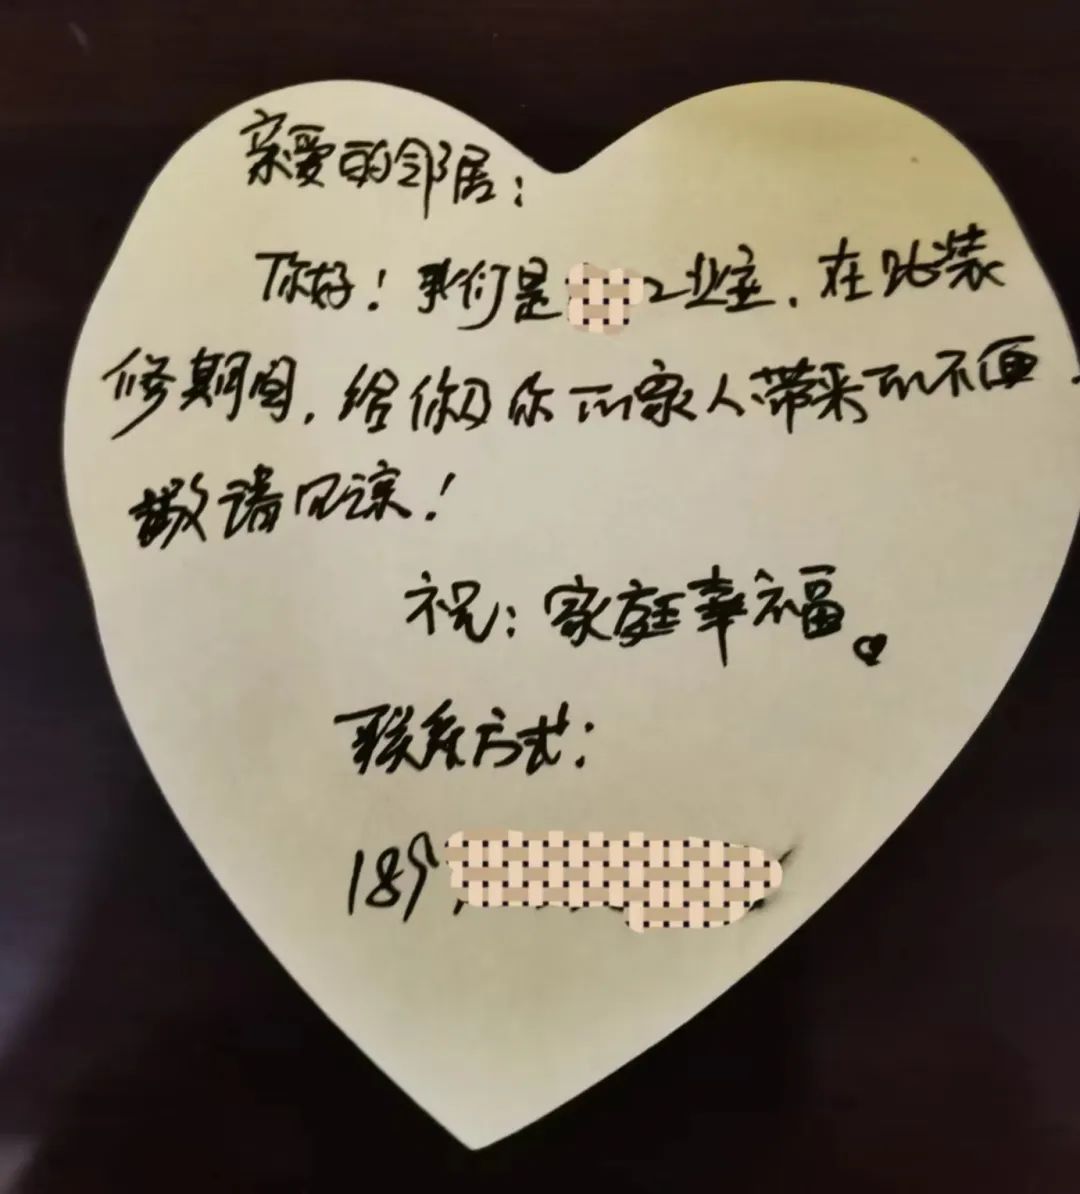 亲爱的邻居：
你好！我们是2业主，在此装
修期间，给你及你的家人带来的不便，
敬请见谅！
祝：家庭幸福。
联系方式：
189